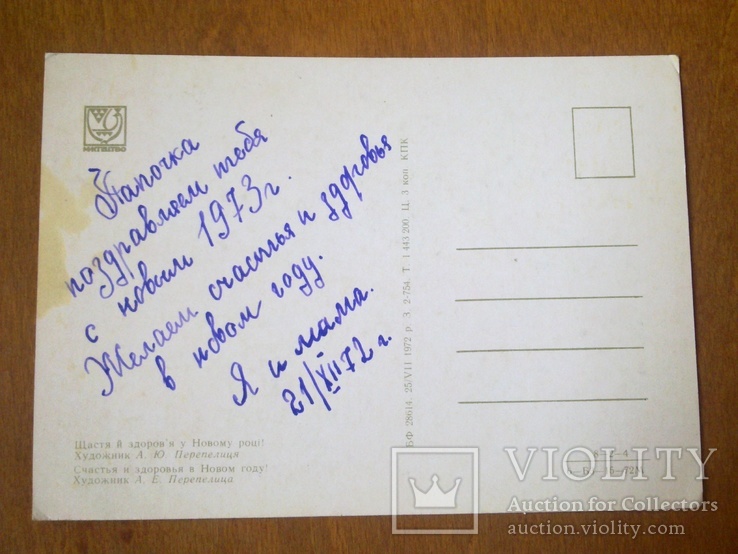 МИСТЕЦТВО
Папочка
поздравляем тебя
с новым 1973 г.
Желаем счастья и здоровья
в новом году.
Я и мама.
21/XII 72 г.
Щастя й здоров'я у Новому році!
Художник А. Ю. Перепелиця
Счастья и здоровья в Новом году!
Художник А. Е. Перепелица
БФ 28614. 25/VII 1972 р. З. 2-754. Т. 1 443 200. Ц. 3 коп. КПК
8-2-4
72М
VIOLITY
Auction for Collectors
auction.violity.com